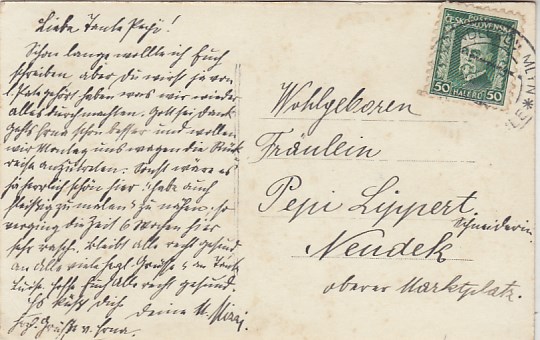 Liebe Tante Pepi!
Schon lange wollte ich Euch
schreiben aber Du wirst ja von
l. Pate gehört haben was wir wieder
alles durchmachten. Gott sei Dank
gehts Irma schon besser und wollen
wir Montag uns wagen die Rück
reise anzutreten. Sonst wäre es
ja herrlich schön hier habe auch
fleißig zu malen u. zu nähen, so
verging die Zeit 6 Wochen hier
sehr rasch. Bleibt alle recht gesund
an Alle viele hzl. Grüsse u. an Tante
hoffe Euch Alle recht gesund.
Es küsst Dich
Deine
Grüsse v. Irma.
POŠTA
ČESKOSLOVENSKÁ
50 HALÉŘŮ 50
MLÝN
Wohlgeboren
Fräulein
Pepi Lippert
Schneiderin
Neudek
oberer Marktplatz.